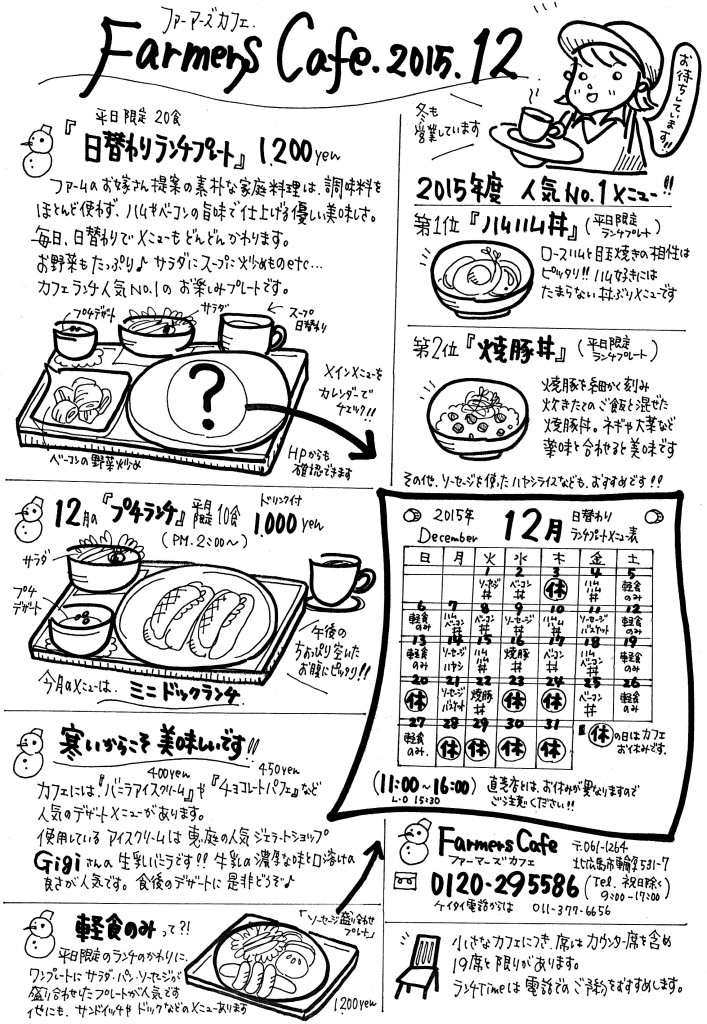 ファーマーズカフェ.
Farmers Cafe. 2015. 12
お待ちしています!!
冬も
営業しています
平日限定 20食
『日替わりランチプレート』 1,200yen
ファームのお嫁さん提案の素朴な家庭料理は、調味料を
ほとんど使わず、ハムやベーコンの旨味で仕上げる優しい美味しさ。
毎日、日替わりでメニューもどんどんかわります。
お野菜もたっぷり♪ サラダにスープに炒めものetc…
カフェランチ人気No.1の お楽しみプレートです。
プチデザート
サラダ
スープ
日替わり
?
メインメニューを
カレンダーで
チェック!!
ベーコンの野菜炒め
HPからも
確認できます
2015年度 人気No.1メニュー!!
第1位『ハムハム丼』(平日限定
ランチプレート)
ロースハムと目玉焼きの相性は
ピッタリ!! ハム好きには
たまらない丼ぶりメニューです
第2位『焼豚丼』(平日限定
ランチプレート)
焼豚を細かく刻み
炊きたてのご飯と混ぜた
焼豚丼。ネギや大葉など
薬味と合わせると美味です
その他、ソーセージを使ったハヤシライスなども、おすすめです!!
12月の『プチランチ』 平日限定10食 ドリンク付 1,000yen
(PM.2:00〜)
サラダ
プチ
デザート
午後の
ちょっぴり空いた
お腹にピッタリ!!
今月のメニューは、ミニドックランチ
2015年
December
12月
日替わり
ランチプレートメニュー表
日 月 火 水 木 金 土
1 2 3 4 5
ソーセージ丼 ベーコン丼 休 ハムハム丼 軽食のみ
6 7 8 9 10 11 12
軽食のみ ハムベーコン丼 ベーコン丼 ソーセージ丼 ハムハム丼 ソーセージバスケット 軽食のみ
13 14 15 16 17 18 19
軽食のみ ソーセージハヤシ ハムハム丼 焼豚丼 ベーコン丼 ハムハム丼 軽食のみ
20 21 22 23 24 25 26
休 ソーセージバスケット 焼豚丼 休 休 ベーコン丼 軽食のみ
27 28 29 30 31
軽食のみ. 休 休 休 休
休の日はカフェ
お休みです。
(11:00〜16:00)
L.O 15:30
直売店とは、お休みが異なりますので
ご注意ください!!
寒いからこそ美味しいです!!
400yen 450yen
カフェには『バニラアイスクリーム』や『チョコレートパフェ』など
人気のデザートメニューがあります。
使用しているアイスクリームは恵庭の人気ジェラートショップ
Gigiさんの生乳バニラです!! 牛乳の濃厚な味と口溶けの
良さが人気です。食後のデザートに是非どうぞ♪
軽食のみって?!
平日限定のランチのかわりに、
ワンプレートにサラダ・パン・ソーセージが
盛り合わせたプレートが人気です
他にも、サンドイッチやドックなどのメニューあります
「ソーセージ盛り合わせ
プレート」
1,200yen
Farmers Cafe
ファーマーズカフェ
〒061-1264
北広島市輪厚531-7
0120-295586 (Tel. 祝日除く)
9:00-17:00
ケイタイ電話からは 011-377-6656
小さなカフェにつき、席はカウンター席を含め
19席と限りがあります。
ランチTimeは電話でのご予約をおすすめします。